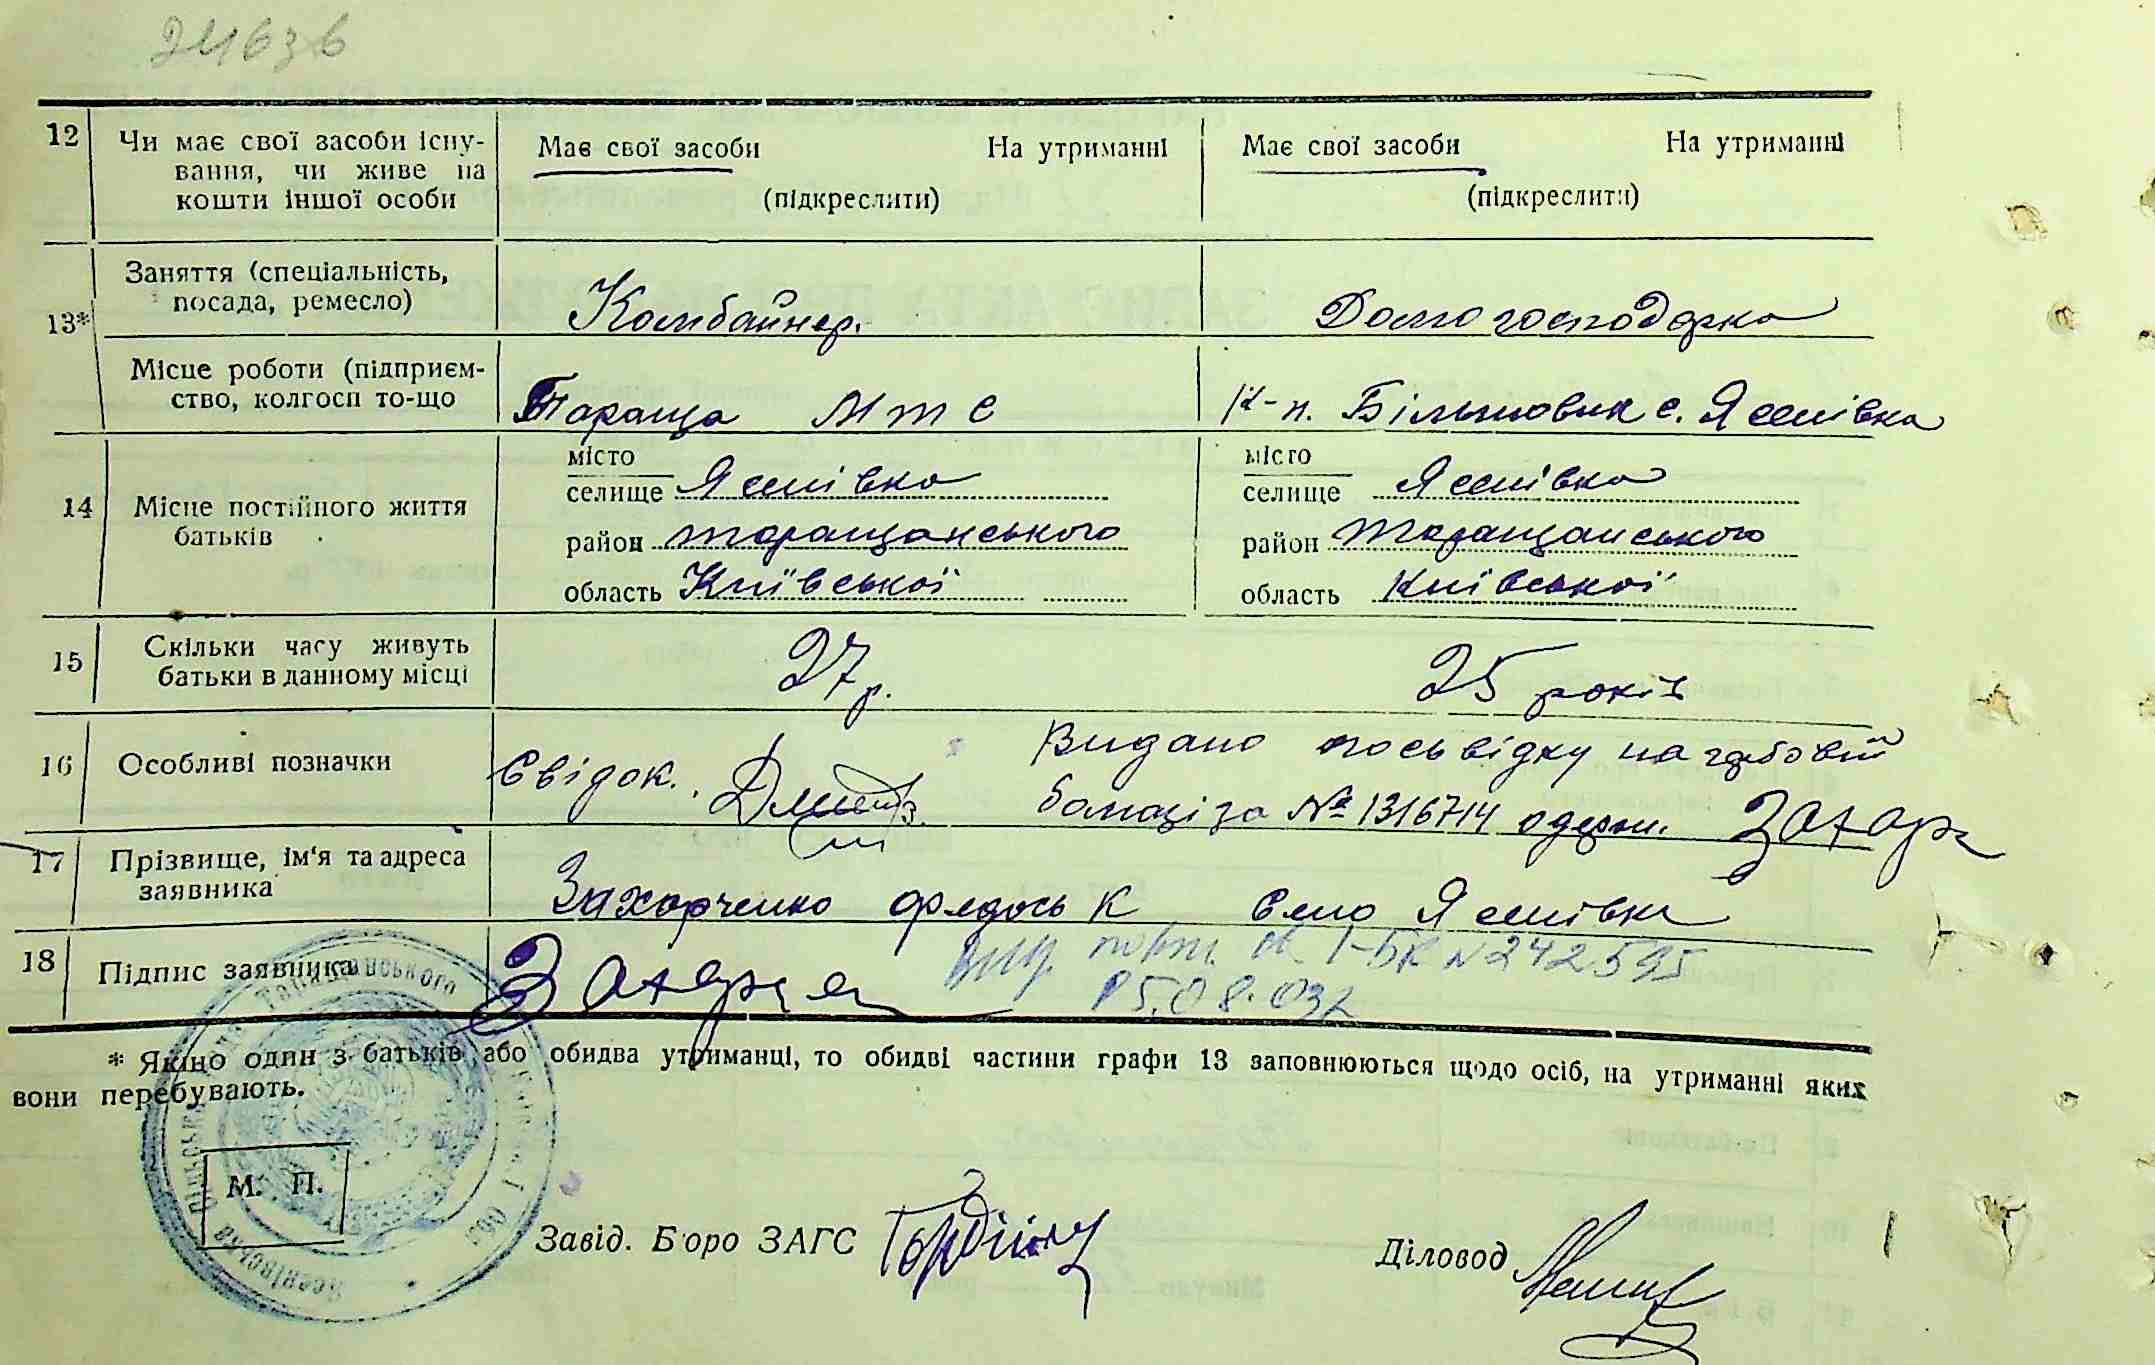 24636
12 Чи має свої засоби існу- Має свої засоби На утриманні Має свої засоби На утриманні
вання, чи живе на
кошти іншої особи (підкреслити) (підкреслити)
Заняття (спеціальність,
посада, ремесло) Комбайнер. Домогосподарка
13*
Місце роботи (підприєм-
ство, колгосп то-що Тараща МТС К-п. Більшовик с. Ясенівка
місто місто
селище Ясенівка селище Ясенівка
14 Місце постійного життя
батьків район Таращанського район Таращанського
область Київської область Київської
15 Скільки часу живуть
батьки в данному місці 27 р. 25 років
Видано посьвідку на гербовій
16 Особливі позначки Свідок.
бомаці за № 1316714 одерж. Захарч
17 Прізвище, ім'я та адреса
заявника Захарченко Федось К село Ясенівка
18 Підпис заявника
повт. 1-БК N 242595
* Якщо один з батьків або обидва утриманці, то обидві частини графи 13 заповнюються щодо осіб, на утриманні яких
вони перебувають.
М. П.
Завід. Бюро ЗАГС
Діловод